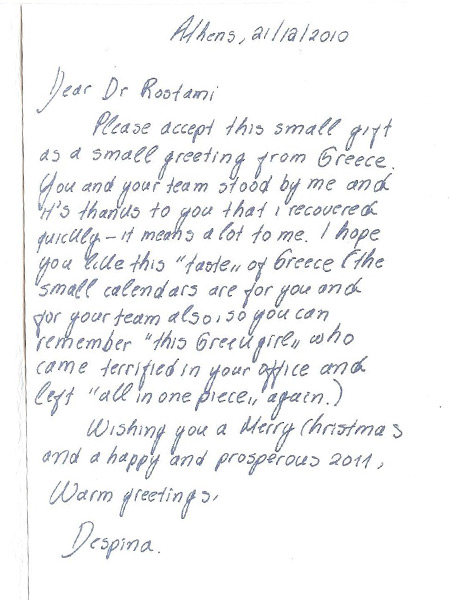 Athens, 21/12/2010
Dear Dr Rostami
Please accept this small gift
as a small greeting from Greece.
You and your team stood by me and
it's thanks to you that i recovered
quickly - it means a lot to me. I hope
you like this "taste„ of Greece (the
small calendars are for you and
for your team also, so you can
remember "this Greek girl„ who
came terrified in your office and
left "all in one piece„ again.)
Wishing you a Merry Christmas
and a happy and prosperous 2011,
Warm greetings,
Despina.